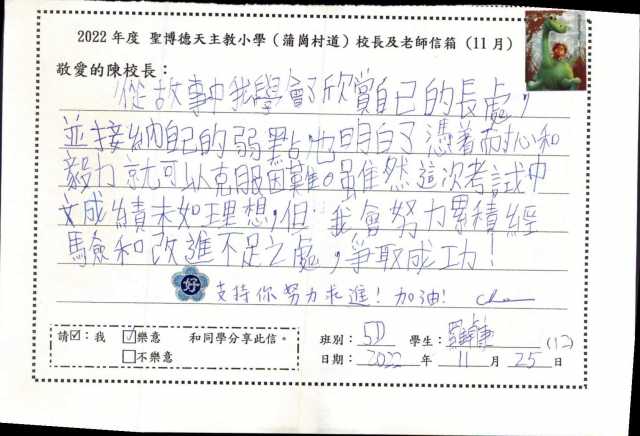 2022 年度 聖博德天主教小學（蒲崗村道）校長及老師信箱（11 月）
敬愛的陳校長：
從故事中我學會了欣賞自己的長處，
並接納自己的弱點，也明白了憑着耐心和
毅力就可以克服困難。雖然這次考試中
文成績未如理想，但我會努力累積經
驗和改進不足之處，爭取成功！
好 支持你努力求進！加油！
請☑：我 ☑樂意 和同學分享此信。
☐不樂意
班別：5D 學生： (12)
日期：2022 年 11 月 25 日